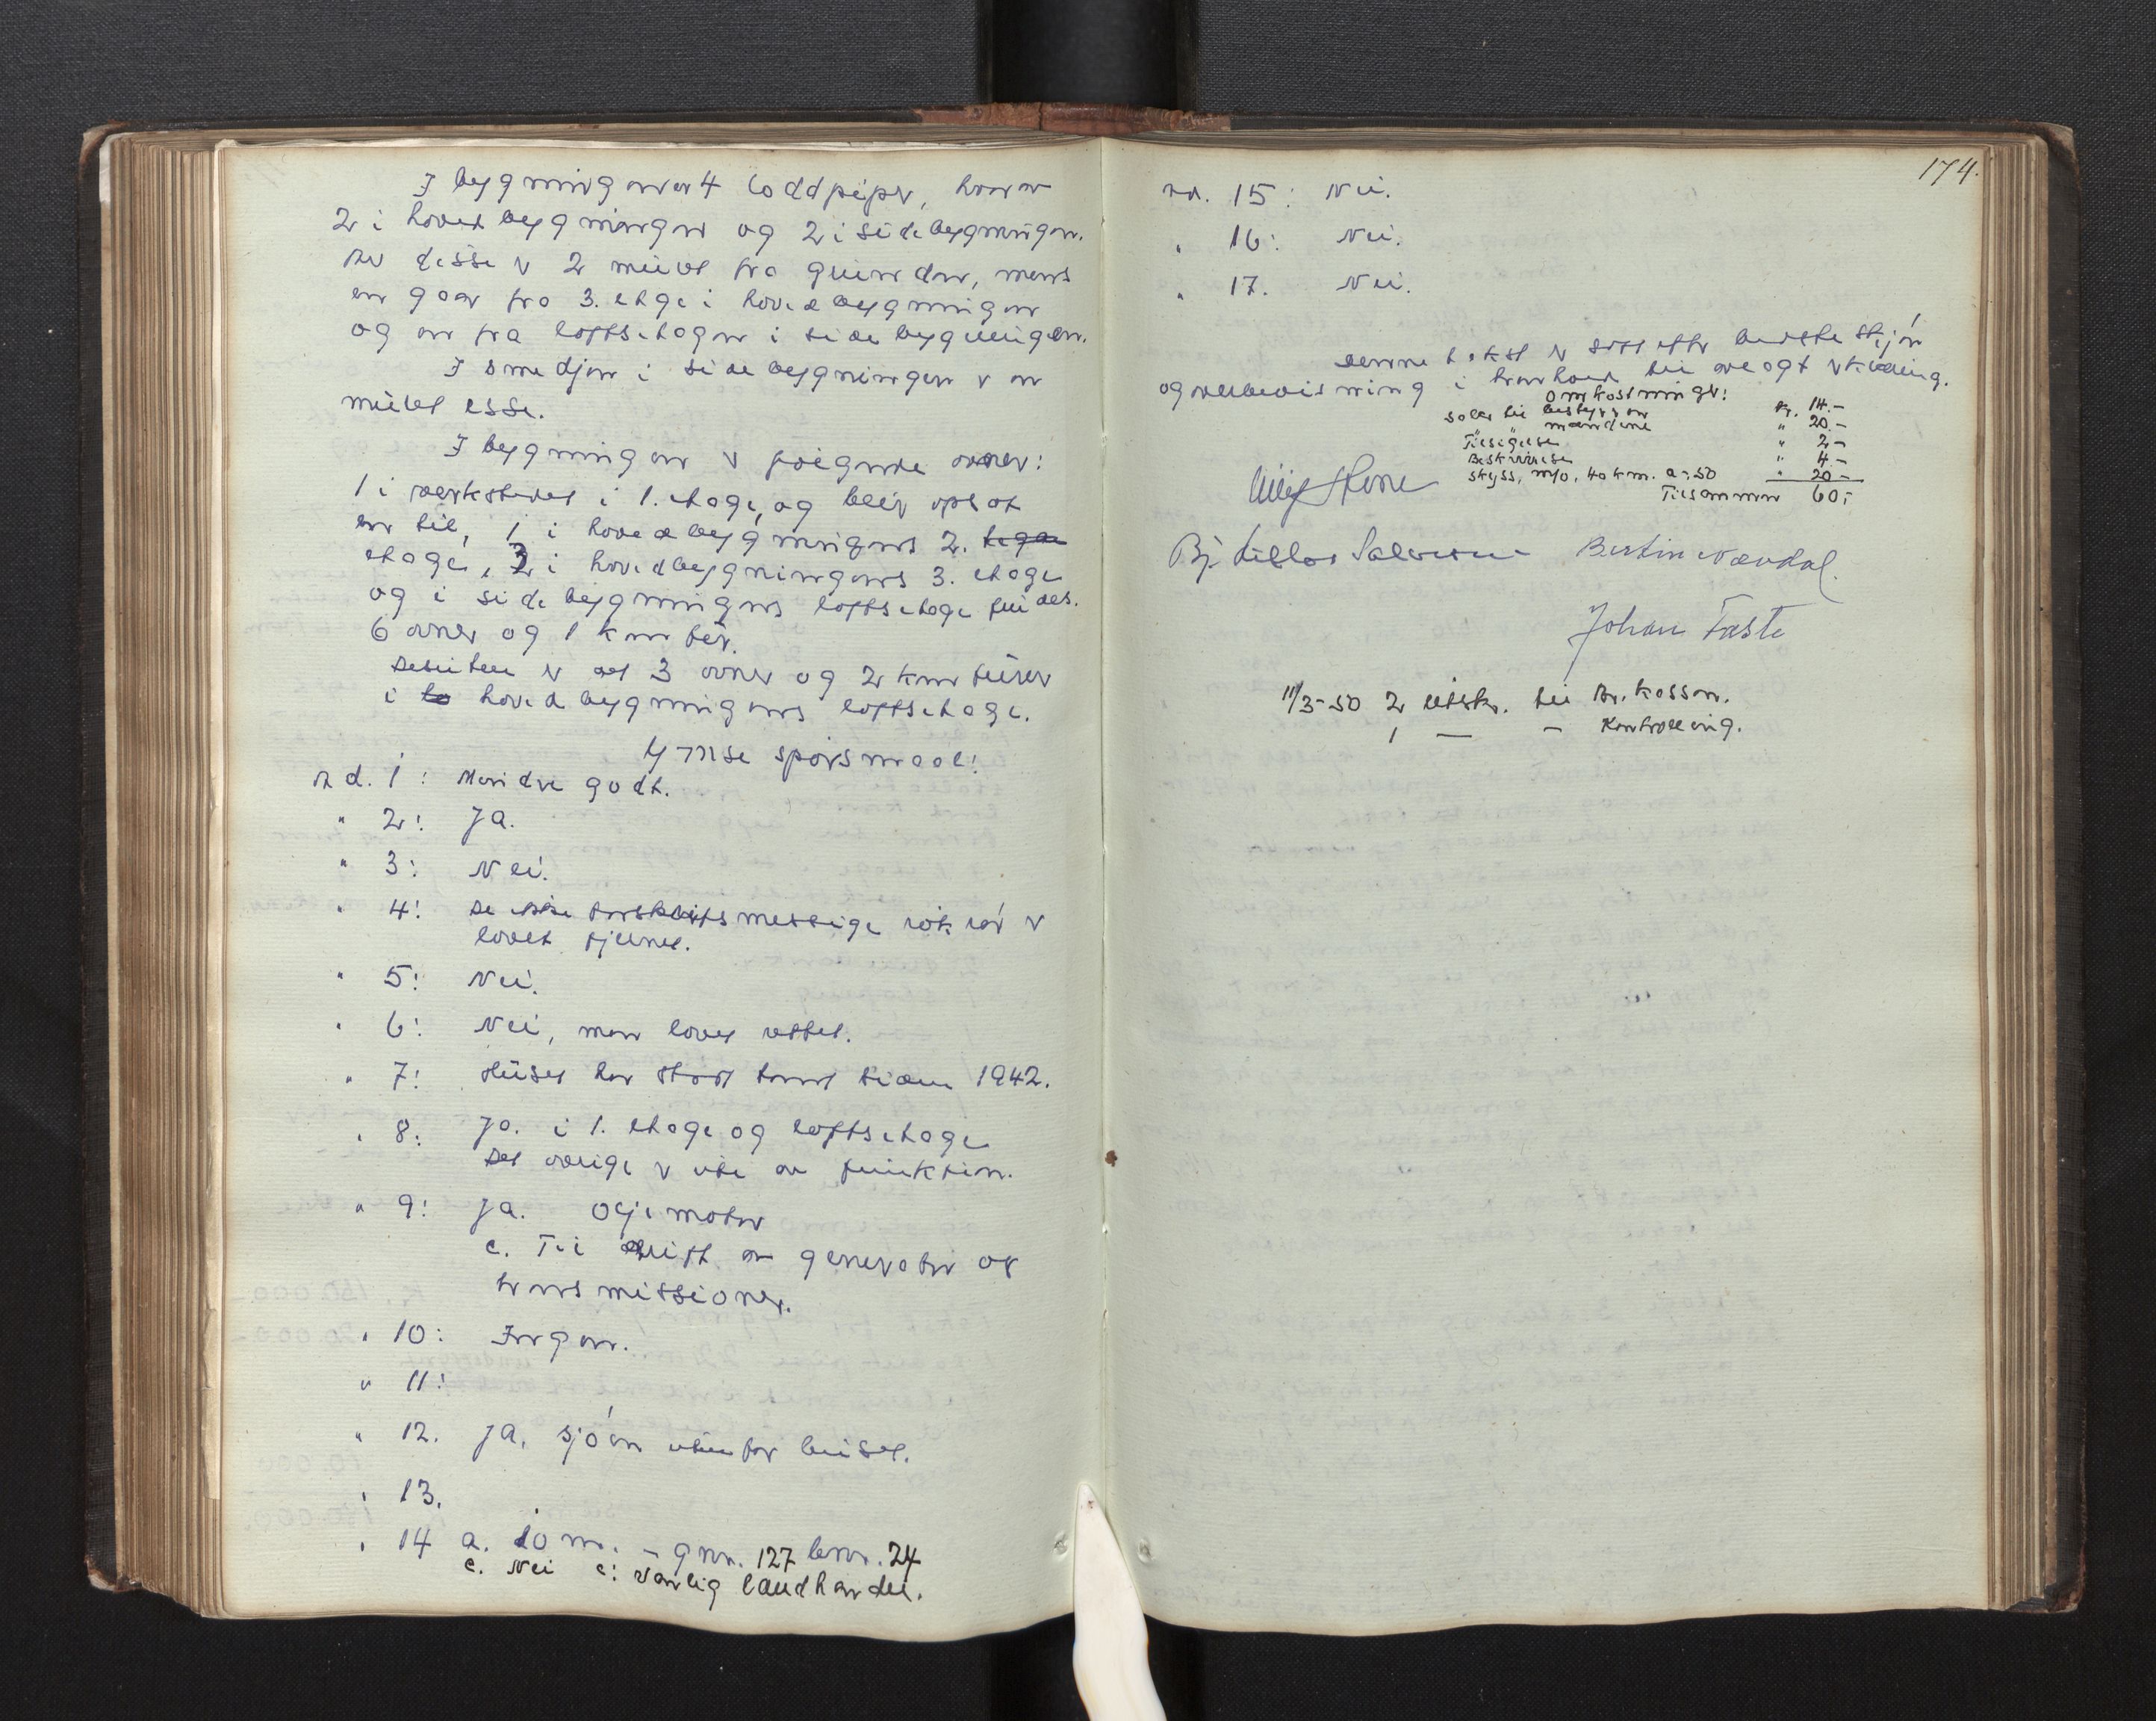 I bygningen er 4 loddpiper, hvorav
2 i hovedbygningen og 2 i sidebygningen.
Av disse er 2 muret fra grunden, mens
en gaar fra 3. etage i hovedbygningen
og en fra loftsetagen i sidebygningen.
I smedjen i sidebygningen er en
muret esse.
I bygningen er følgende ovner:
1 i verkstedet i 1. etage, og blir opsat
en til, 1 i hovedbygningens 2.
etage, 2 i hovedbygningens 3. etage
og i sidebygningens loftsetage finnes
6 ovner og 1 komfur.
Desuten er det 3 ovner og 2 komfurer
i hovedbygningens loftsetage.
Ymse spørsmaal:
Ad. 1: Mindre godt.
" 2: Ja.
" 3: Nei.
" 4: De ikke forskriftsmessige rökrör er
lovet fjernet.
" 5: Nei.
" 6: Nei, men lovet rettet.
" 7: Huset har staat tomt siden 1942.
" 8: Ja. i 1. etage og loftsetage
Det övrige er ute av funktion.
" 9: Ja. Oljemotor
c. Til drift av generator og
transmissioner.
" 10: Ingen.
" 11:
" 12. Ja, sjöen utenfor huset.
" 13.
" 14 a. 10 m. - gnr. 127 bnr. 24
c. Nei e: Vanlig landhandel.
174.
Ad. 15: Nei.
" 16: Nei.
" 17. Nei.
Denne takst er satt efter beste skjön
og overbevisning i henhold til avlagt erklæring.
Omkostninger:
Salær til bestyreren kr. 14.-
" " mændene " 20.-
Tilsigelse " 2-
Beskrivelse " 4-
Skyss, m/o, 40 km. a -,50 " 20-
Tilsammen 60,-
Bj. Lillos Salvesen Bertin Nævdal.
Johan Faste
11/3-50 2 utskr. til Br. kassen.
1 — - Kontrolling.